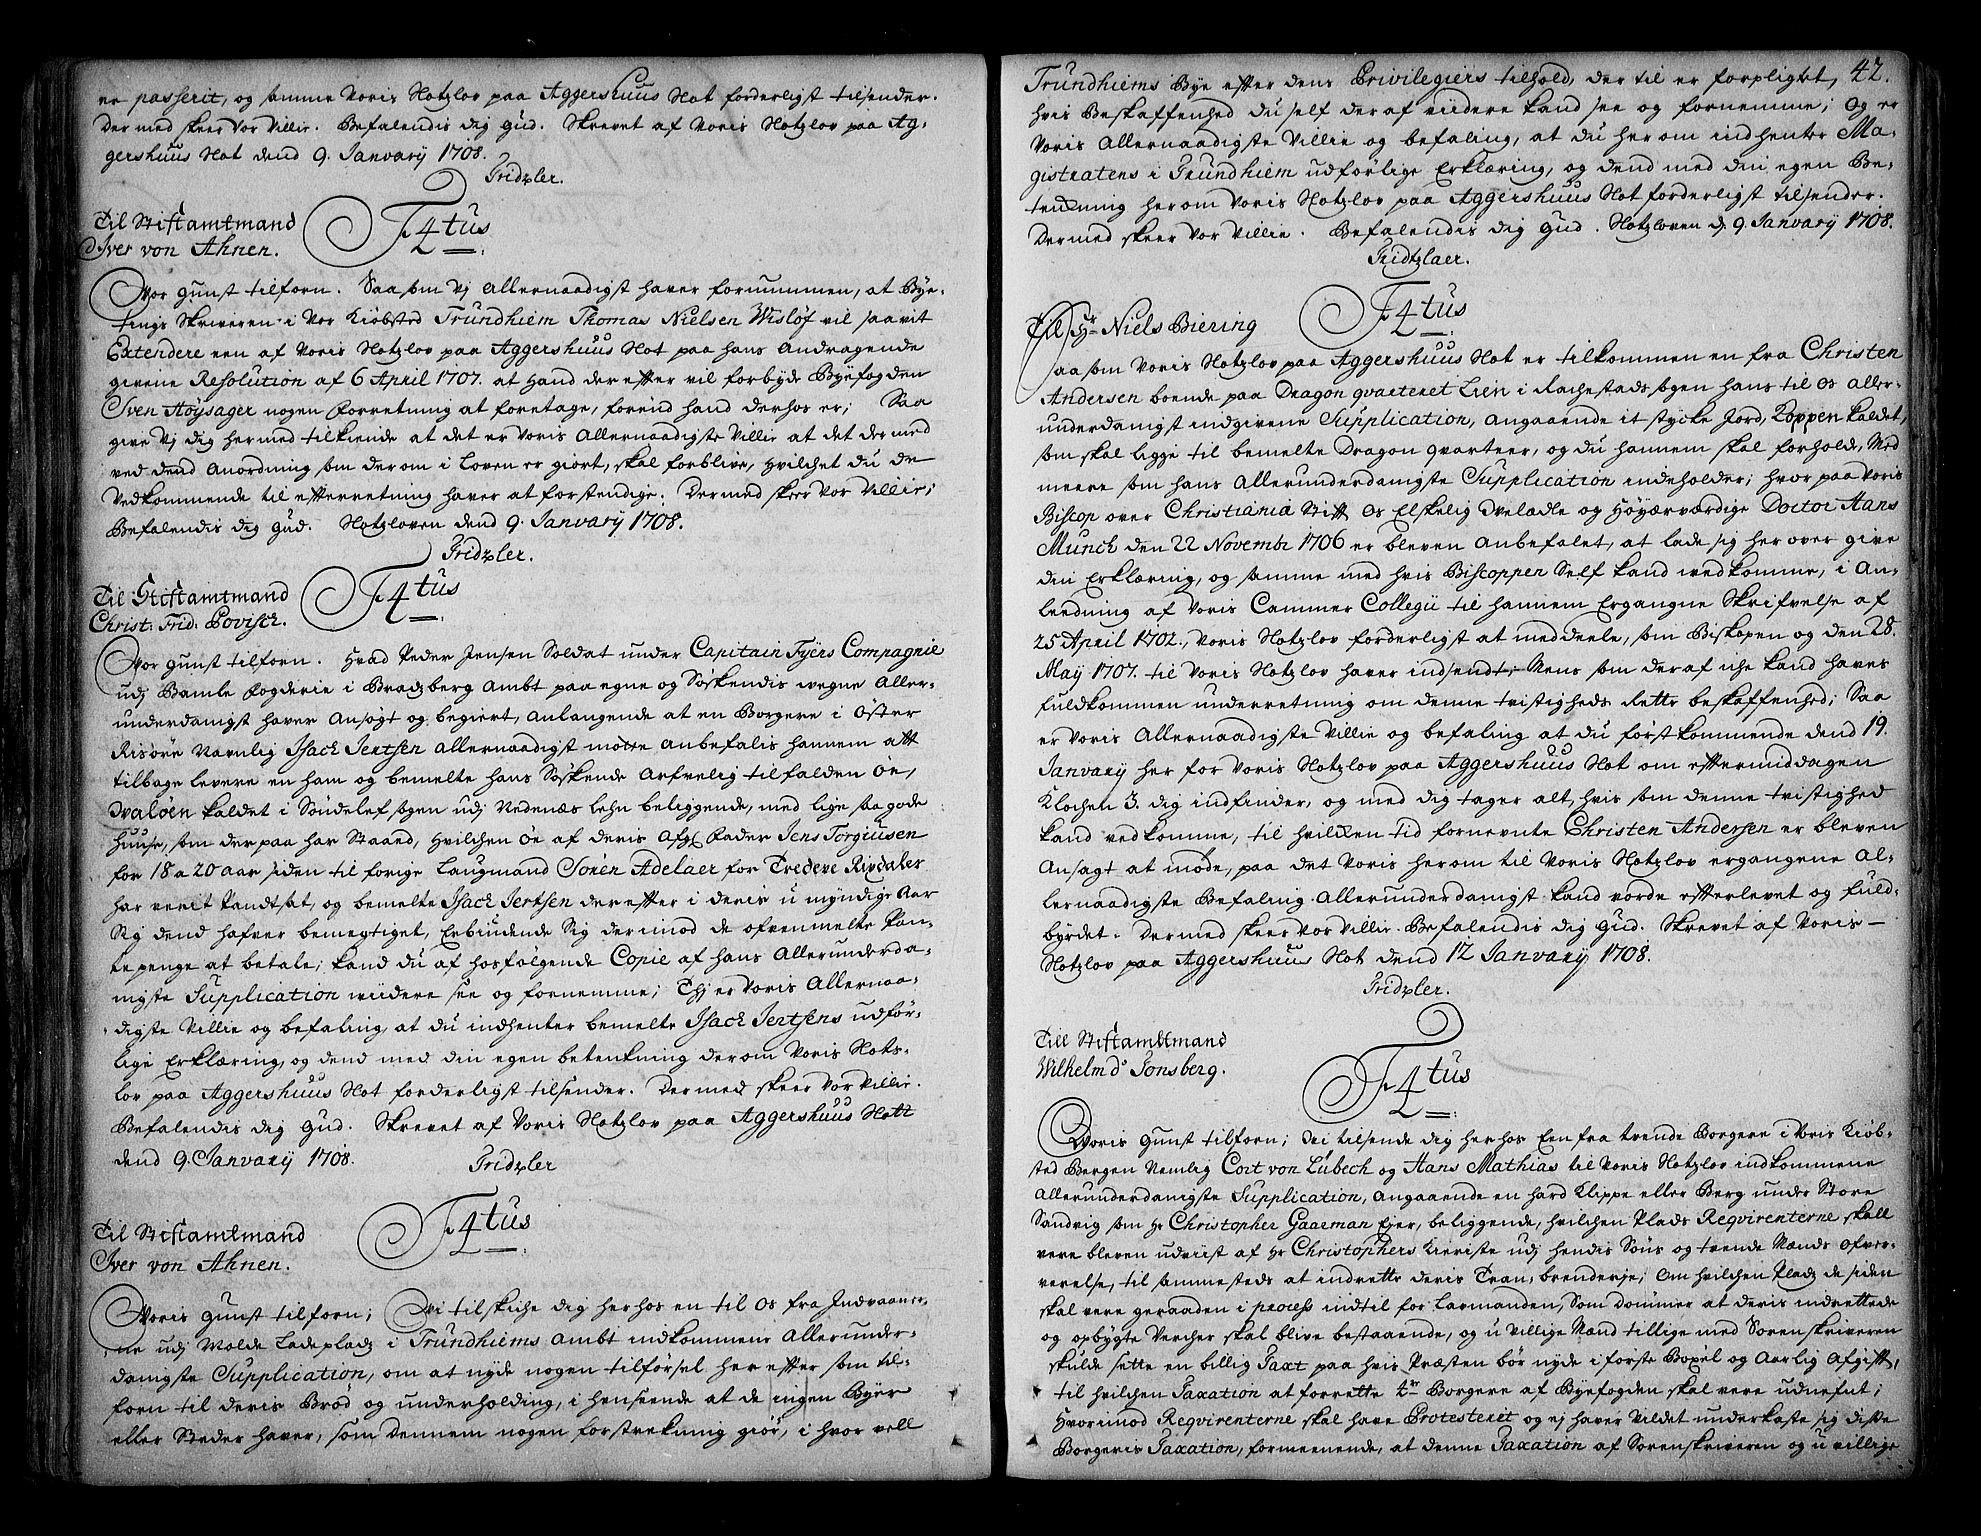 er passerit, og samme Voris Slotzlov paa Aggershuus Slot forderligst tilsender.
Dermed skeer Vor Villie. Befalendis dig Gud. Skrevet af Voris Slotzlov paa Ag-
gershuus Slot dend 9. Janvarij 1708.
Fridzler.
Til Stiftamtmand
Iver von Ahnen.
F 4tus
Vor gunst tilforn. Saasom Vj Allernaadigst haver fornummen, at Bye-
tings Skriveren i Vor Kiøbsted Trundhiem Thomas Nielsen Wisløf vil saavit
Extendere een af Voris Slotzlov paa Aggershuus Slot paa hans Andragende
givene Resolution af 6 April 1707. at hand der effter vil forbyde Byefogden
Sven Høysager nogen Forretning at foretage, forend hand derhos er; Saa
give Vj dig hermed tilkiende at det er Voris Allernaadigste Villie at det dermed
ved dend Anordning som derom i Loven er giort, skal forblive, hvilchet du de
Vedkommende til effterretning haver at forstendige. Dermed skeer Vor Villie;
Befalendis dig Gud. Slotzloven dend 9. Janvarij 1708.
Fridzler.
Til Stiftamtmand
Christ: Frid: Povisch.
F 4tus
Vor gunst tilforn. Hvad Peder Jensen Soldat under Capitain Fyers Compagnie
udj Bamle Fogderie i Bradzberg Ambt paa egne og Søskendis wegne Aller-
underdanigst haver Ansøgt og begiert, Anlangende at en Borgere i Øster
Risøer Navnlig Isach Jertsen allernaadigst motte anbefalis hannem att
tilbage levere en ham og bemelte hans Søskende Arfvelig tilfalden Øe,
Svaløen kaldet i Søndelef sogn udj Nedenæs Lehn beliggende, med lige saa gode
Huuse, som der paa har Staaed, hvilchen Øe af deris Afg: Fader Jens Torguusen
for 18 a 20 aar siden til forige Laugmand Søren Adelaer for Tredeve Rixdaler
har verit Pandtsat, og bemelte Isach Jertsen der effter i deris umyndige Aar
Sig dend hafver bemegtiget, Erbiudende Sig derimod de ofvenmelte Pan-
tepenge at betale; kand du af hosfølgende Copie af hans Allerunderda-
nigste Supplication wiidere see og fornemme; Thj er Voris Allernaa-
digste Villie og befaling, at du indhenter bemelte Isach Jertsens udfør-
lige Erklæring, og dend med din egen betenkning derom Voris Slots-
lov paa Aggershuus Slot forderligst tilsender. Dermed skeer Vor Villie.
Befalendis dig Gud. Skrevet af Voris Slotzlov paa Aggershuus Slott
dend 9. Janvarij 1708.
Fridzler
Til Stiftamtmand
Iver von Ahnen.
F 4tus
Voris gunst tilforn; Wi tilskiche dig herhos en til Os fra Indvaaner-
ne udj Molde Ladeplads i Trundhiems Ambt indkommene Allerunder-
danigste Supplication, om at nyde nogen tilførsel her effter som til-
forn til deris Brød og underholding, i henseende at de ingen Byer
eller Steder haver, som dennem nogen forstrekning giør, i hvor vell
42.
Trundhiems Bye effter dens Privilegiers tilhold, der til er forpligtet,
hvis Beskaffenhed du self deraf viidere kand see og fornemme; Og er
Voris Allernaadigste Villie og befaling, at du her om indhenter Ma-
gistratens i Trundhiem udførlige Erklæring, og dend med din egen Be-
tenkning herom Voris Slotzlov paa Aggershuus Slot forderligst tilsender.
Dermed skeer Vor Villie. Befalendis dig Gud. Slotzloven d. 9. Janvarij 1708.
Fridtzlaer.
Til Hr Niels Biering
F 4tus
Saasom Voris Slotzlov paa Aggershuus Slot er tilkommen en fra Christen
Andersen boende paa Dragon qvarteret Lien i Rachestads sogn hans til Os Aller-
underdanigst indgivene Supplication, angaaende it stycke Jord, Koppen kaldet,
som skal ligge til bemelte Dragon qvarteer, og du hannem skal forholde, Med
meere som hans Allerunderdanigste Supplication indeholder; hvor paa Voris
Biscop over Christiania Stift Os Elskelig Velædle og Høyærværdige Doctor Hans
Munch den 22 Novembr 1706 er bleven Anbefalet, at lade sig her over give
din Erklæring, og samme med hvis Biscoppen Self kand wedkomme, i An-
leedning af Voris Cammer Collegii til hannem Ergangne Skrifvelse af
25 April 1702., Voris Slotzlov forderligst at meddeele, som Biskopen og den 28.
May 1707. til Voris Slotzlov haver indsendt; Mens som deraf iche kand haves
fuldkommen underretning om denne tvistigheds Rette beskaffenhed; Saa
er Voris Allernaadigste Villie og befaling at du førstkommende dend 19.
Janvarij her for Voris Slotzlov paa Aggershuus Slot om effermiddagen
Klochen 3. dig indfinder, og med dig tager alt, hvis som denne tvistighed
kand vedkomme, til hvilken tid fornevnte Christen Andersen er bleven
Ansagt at møde, paa det Voris herom til Voris Slotzlov ergangene Al-
lernaadigste Befaling Allerunderdanigst kand vorde effterlevet og fuld-
byrdet. Dermed skeer Vor Villie. Befalendis dig Gud. Skrevet af Voris
Slotzlov paa Aggershuus Slot dend 12 Janvarij 1708.
Fridzler.
Till Stiftamtmand
Wilhelm d' Tonsberg.
F 4tus
Voris gunst tilforn; Wi tilsende dig herhos Een fra tvende Borgere i Voris Kiøb-
sted Bergen Nemlig Cort von Lübech og Hans Mathias til Voris Slotzlov indkommene
Allerunderdanigste Supplication, angaaende en hard Klippe eller Berg under Store
Sandvig som Hr Christopher Gaarman Ejer, beliggende, hvilchen Plads Reqvirenterne skall
vere bleven udviist af Hr Christophers Kieriste udj hendis Søns og tvende Mænds ofver-
verelse, til sammesteds at indrette deris Tran-brenderje; Om hvilchen Plads de siden
skal vere geraaden i process indtil for Lavmanden, som dømmer at deris indrettede
og opbygte Vercher skal blive bestaaende, og uvillige Mænd tillige med Sorenskriveren
skulde sette en billig Taxt paa hvis Præsten bør nyde i første Bøxel og Aarlig Afgifft,
til hvilchen Taxation at forrette tvr Borgere af Byefogden skal vere udnefnt;
Hvorimod Reqvirenterne skal have Protesterit og ej haver Villet underkaste sig disse
Borgeris Taxation, formeenende, at denne Taxation af Sorenskriveren og uvillige